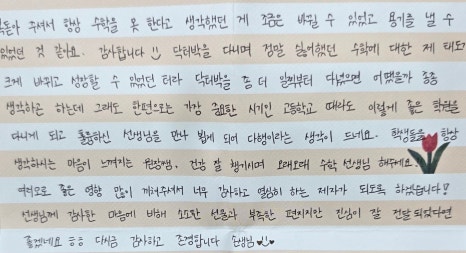 주셔서 항상 수학을 못 한다고 생각했던 게 조금은 바뀔 수 있었고 용기를 낼 수
있었던 것 같아요. 감사합니다 :) 닥터박을 다니며 정말 싫어했던 수학에 대한 제 태도가
크게 바뀌고 성장할 수 있었던 터라 닥터박을 좀 더 일찍부터 다녔으면 어땠을까 종종
생각하는데 그래도 한편으로는 가장 중요한 시기인 고등학교 때라도 이렇게 좋은 학원을
다니게 되고 훌륭하신 선생님을 만나 뵙게 되어 다행이라는 생각이 드네요. 학생들을 항상
생각하시는 마음이 느껴지는 원장쌤, 건강 잘 챙기시며 오래오래 수학 선생님 해주세요.
여러모로 좋은 영향 많이 끼쳐주셔서 너무 감사하고 열심히 하는 제자가 되도록 하겠습니다!
선생님께 감사한 마음에 비해 소소한 선물과 부족한 편지지만 진심이 잘 전달되었다면
좋겠네요 ㅎㅎ 다시금 감사하고 존경합니다 선생님